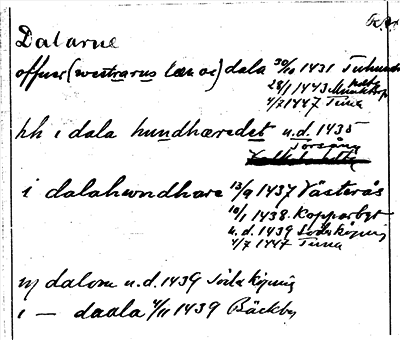 Dalarne
offuer (westrarus læn oc) dala 30/10 1431 Tuhund
28/1 1443 Munktorp
4/7 1447 Tuna
hh i dala hundhæredet u.d. 1435
Torsång
i dalahwndhare 13/9 1437 Västerås
10/1 1438 Kopparbget
u.d. 1439 Söderköping
4/7 1447 Tuna
w dalom u.d. 1439 Söderköping
i — daala 4/11 1439 Bäckby